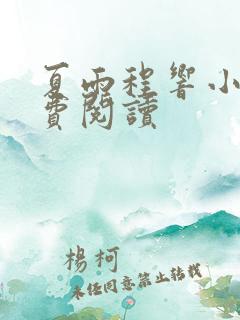 夏雨程響小
費閱讀
楊柯
未經同意禁止轉載